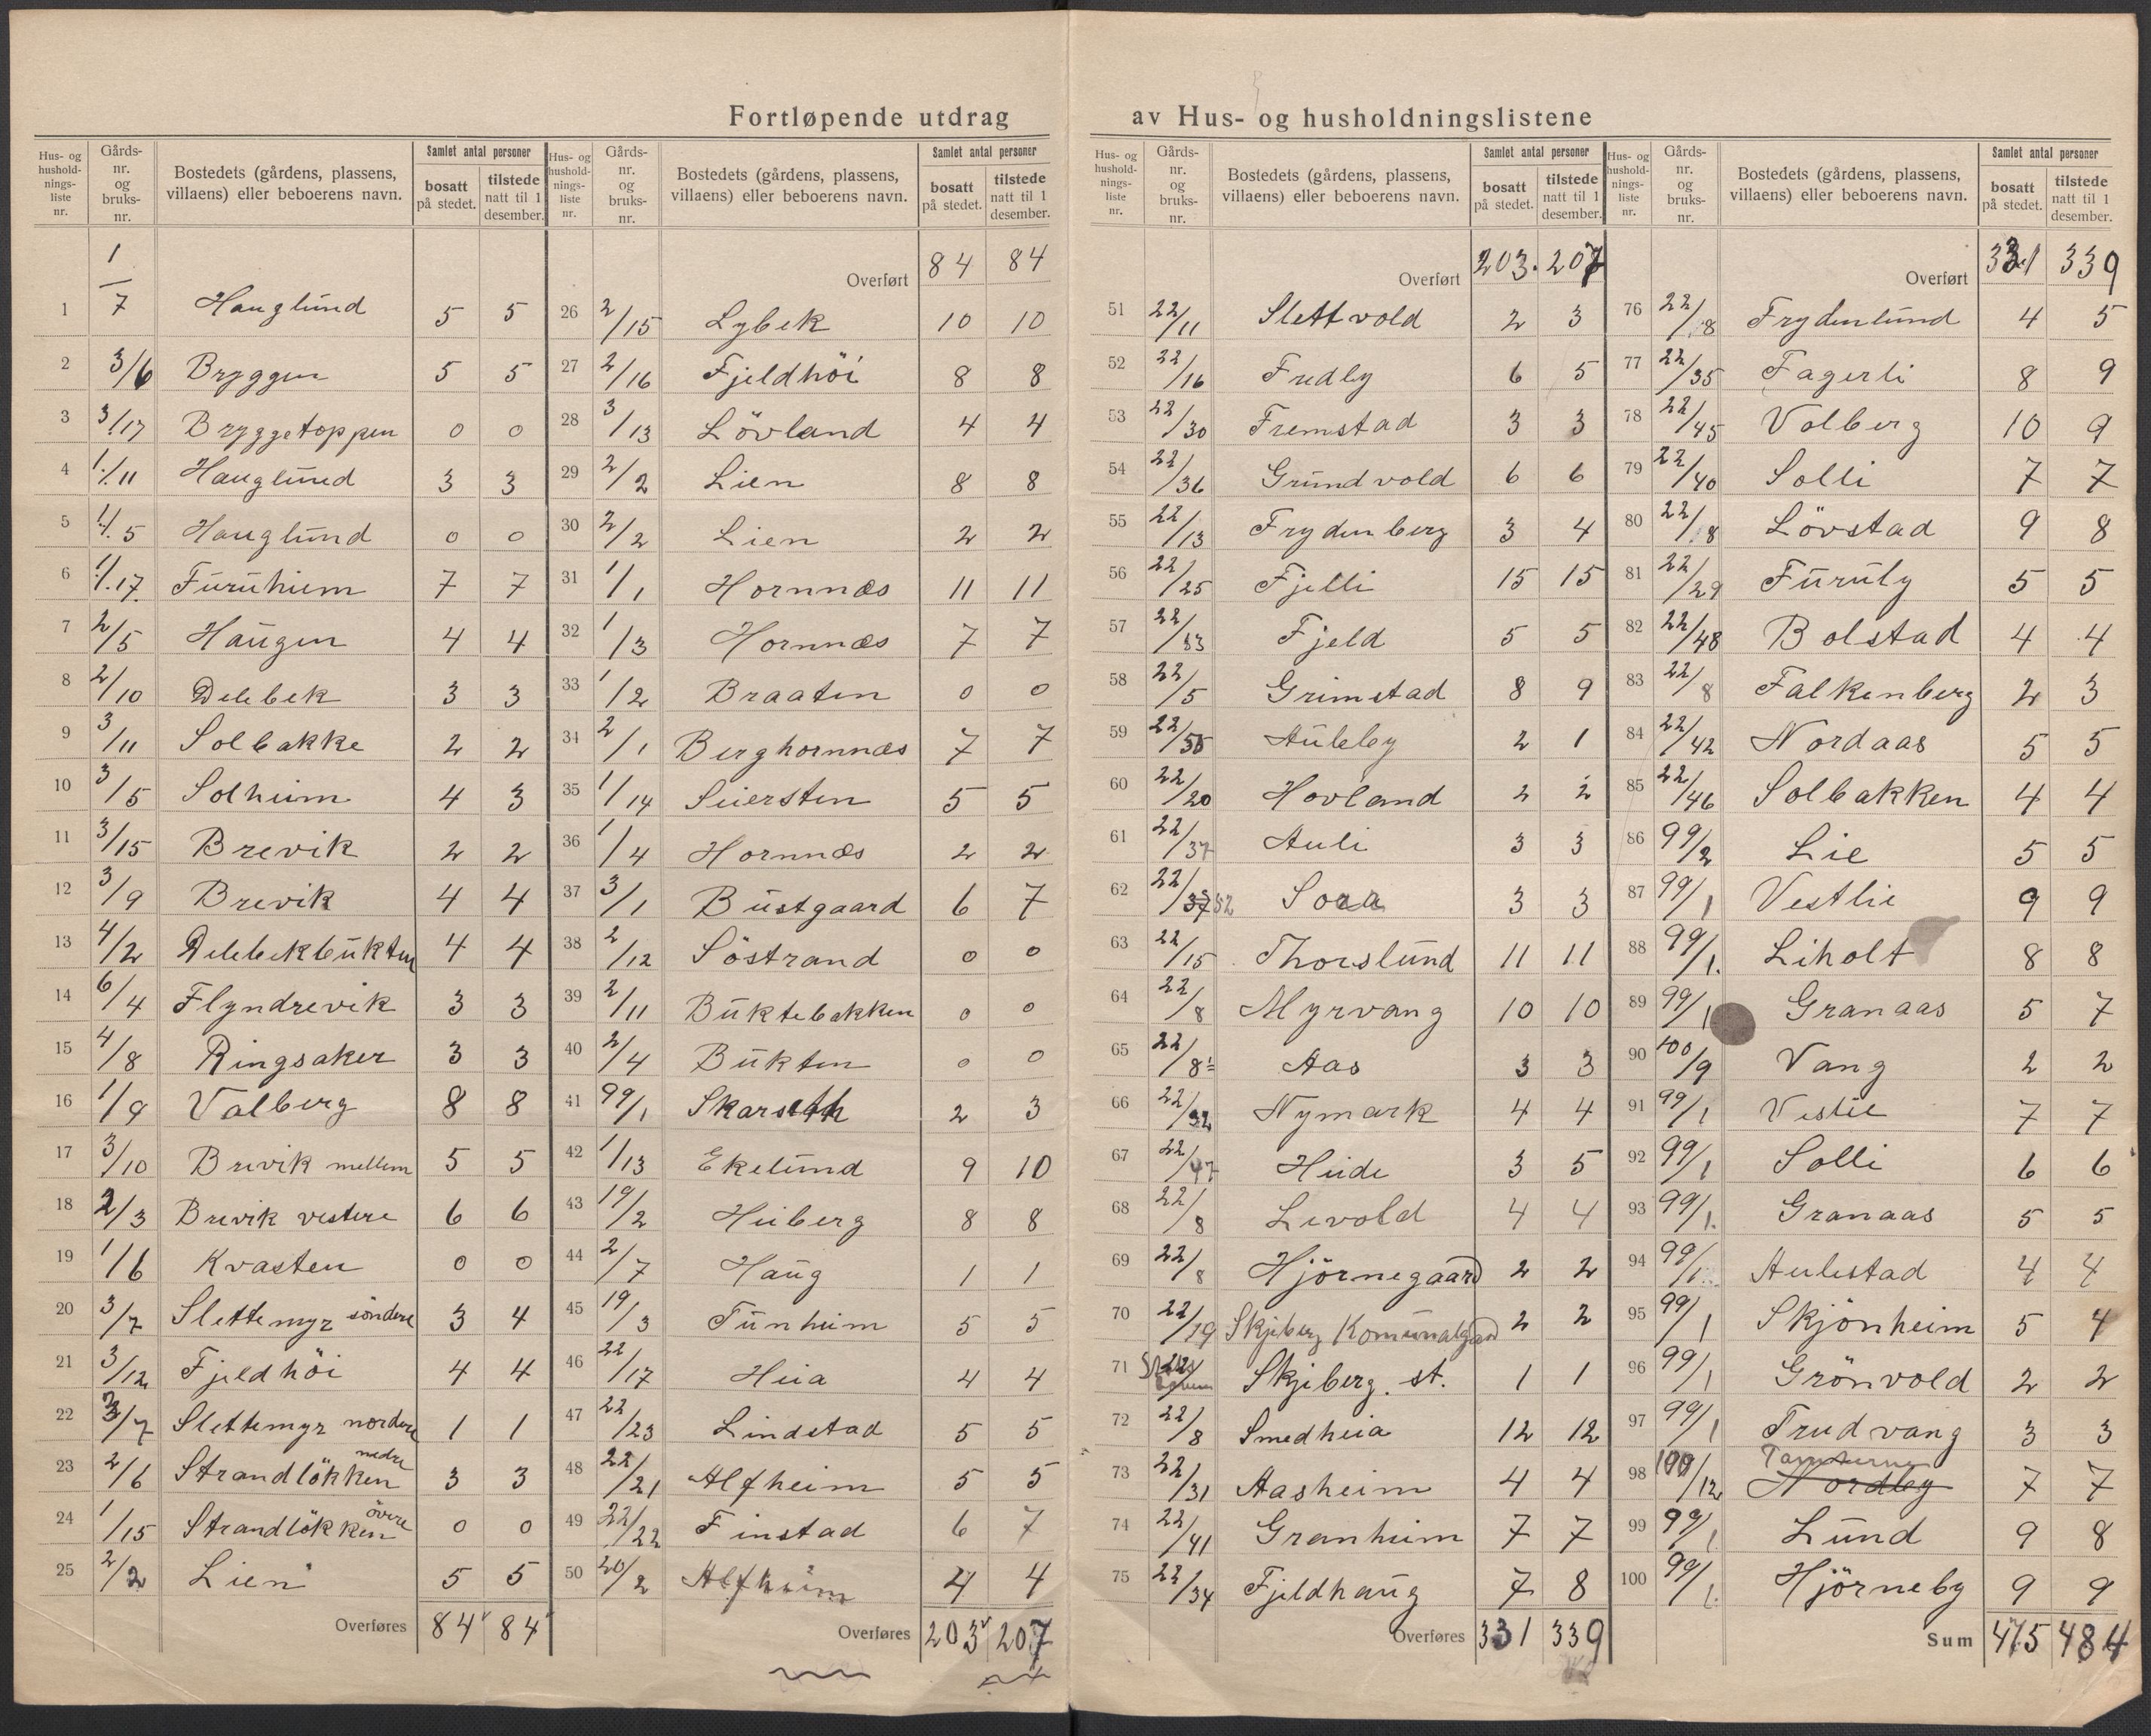 Fortløpende utdrag av Hus- og husholdningslistene
Hus- og husholdnings-liste nr. | Gårds-nr. og bruks-nr. | Bostedets (gårdens, plassens, villaens) eller beboerens navn. | Samlet antal personer bosatt på stedet. | tilstede natt til 1 desember.
1 1/7 Hauglund 5 5
2 3/6 Bryggen 5 5
3 3/17 Bryggetoppen 0 0
4 1/11 Hauglund 3 3
5 1/5 Hauglund 0 0
6 1/17 Furuheim 7 7
7 2/5 Haugen 4 4
8 2/10 Delebek 3 3
9 3/11 Solbakke 2 2
10 3/5 Solheim 4 3
11 3/15 Brevik 2 2
12 3/9 Brevik 4 4
13 4/2 Delebekbukten 4 4
14 6/4 Flyndrevik 3 3
15 4/8 Ringsaker 3 3
16 1/9 Valberg 8 8
17 3/10 Brevik mellem 5 5
18 2/3 Brevik vestere 6 6
19 1/6 Kvasten 0 0
20 3/7 Slettemyr söndere 3 4
21 3/12 Fjeldhöi 4 4
22 /7 Slettemyr nordere 1 1
23 2/6 Strandlökken nedre 3 3
24 1/15 Strandlökken övre 0 0
25 2/2 Lien 5 5
Overføres 84 84
Hus- og husholdnings-liste nr. | Gårds-nr. og bruks-nr. | Bostedets (gårdens, plassens, villaens) eller beboerens navn. | Samlet antal personer bosatt på stedet. | tilstede natt til 1 desember.
Overført 84 84
26 2/15 Lybek 10 10
27 2/16 Fjeldhöi 8 8
28 3/13 Lövland 4 4
29 2/2 Lien 8 8
30 2/2 Lien 2 2
31 1/1 Hornnæs 11 11
32 1/3 Hornnæs 7 7
33 1/2 Braaten 0 0
34 2/1 Berghornnæs 7 7
35 1/14 Seiersten 5 5
36 1/4 Hornnæs 2 2
37 3/1 Bustgaard 6 7
38 2/12 Söstrand 0 0
39 2/11 Buktebakken 0 0
40 2/4 Bukten 0 0
41 99/1 Skarseth 2 3
42 1/13 Ekelund 9 10
43 19/2 Heiberg 8 8
44 2/7 Haug 1 1
45 19/3 Tunheim 5 5
46 22/17 Heia 4 4
47 22/23 Lindstad 5 5
48 22/21 Alfheim 5 5
49 22/22 Finstad 6 7
50 20/2 Alfheim 4 4
Overføres 203 207
Hus- og husholdnings-liste nr. | Gårds-nr. og bruks-nr. | Bostedets (gårdens, plassens, villaens) eller beboerens navn. | Samlet antal personer bosatt på stedet. | tilstede natt til 1 desember.
Overført 203 207
51 22/11 Slettvold 2 3
52 22/16 Fredly 6 5
53 22/30 Fremstad 3 3
54 22/36 Grundvold 6 6
55 22/13 Frydenberg 3 4
56 22/25 Fjelli 15 15
57 22/33 Fjeld 5 5
58 22/5 Grimstad 8 9
59 22/55 Auleby 2 1
60 22/20 Hovland 2 2
61 22/37 Auli 3 3
62 22/37 52 Sora 3 3
63 22/15 Thorslund 11 11
64 22/8 Myrvang 10 10
65 22/8 Aas 3 3
66 22/32 Nymark 4 4
67 22/47 Heide 3 5
68 22/8 Levold 4 4
69 22/8 Hjörnegaard 2 2
70 22/19 Skjeberg Komunalgaard 2 2
71 Skjeberg. st. 1 1
72 22/8 Smedheia 12 12
73 22/31 Aasheim 4 4
74 22/41 Granheim 7 7
75 22/34 Fjeldhaug 7 8
Overføres 331 339
Hus- og husholdnings-liste nr. | Gårds-nr. og bruks-nr. | Bostedets (gårdens, plassens, villaens) eller beboerens navn. | Samlet antal personer bosatt på stedet. | tilstede natt til 1 desember.
Overført 331 339
76 22/8 Frydenlund 4 5
77 22/35 Fagerli 8 9
78 22/45 Volberg 10 9
79 22/40 Solli 7 7
80 22/8 Lövstad 9 8
81 22/29 Furuly 5 5
82 22/48 Bolstad 4 4
83 22/8 Falkenberg 2 3
84 22/42 Nordaas 5 5
85 22/46 Solbakken 4 4
86 99/2 Lie 5 5
87 99/1 Vestlie 9 9
88 99/1 Liholt 8 8
89 99/1 Granaas 5 7
90 100/9 Vang 2 2
91 99/1 Vestli 7 7
92 99/1 Solli 6 6
93 99/1 Granaas 5 5
94 99/1 Aulestad 4 4
95 99/1 Skjönheim 5 4
96 99/1 Grönvold 2 2
97 99/1 Trudvang 3 3
98 100/12 Nordby 7 7
99 99/1 Lund 9 8
100 99/1 Hjörneby 9 9
Sum 475 484